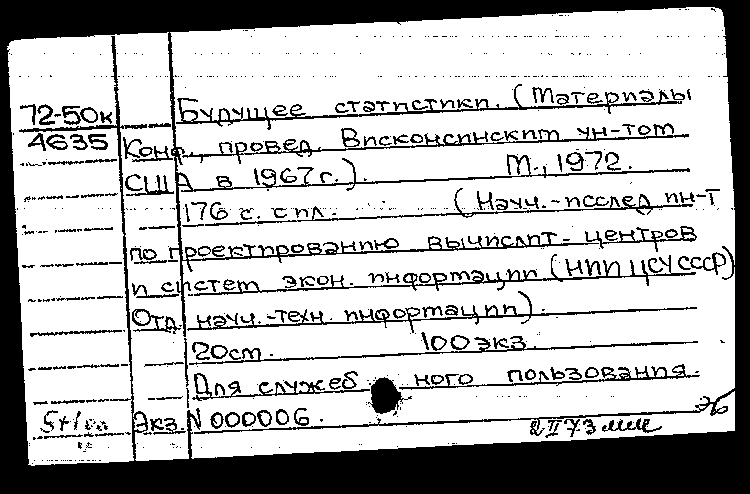 72-50к Будущее статистики. (Материалы
4635 Конф., провед. Висконсинским ун-том
США в 1967 г.). М., 1972.
176 с. с ил. (Науч.-исслед. ин-т
по проектированию вычислит. центров
и систем экон. информации (НИИ ЦСУ СССР)
Отд. науч.-техн. информации).
20см. 100 экз.
Для служебного пользования.
Экз. N 000006.
2 II 73